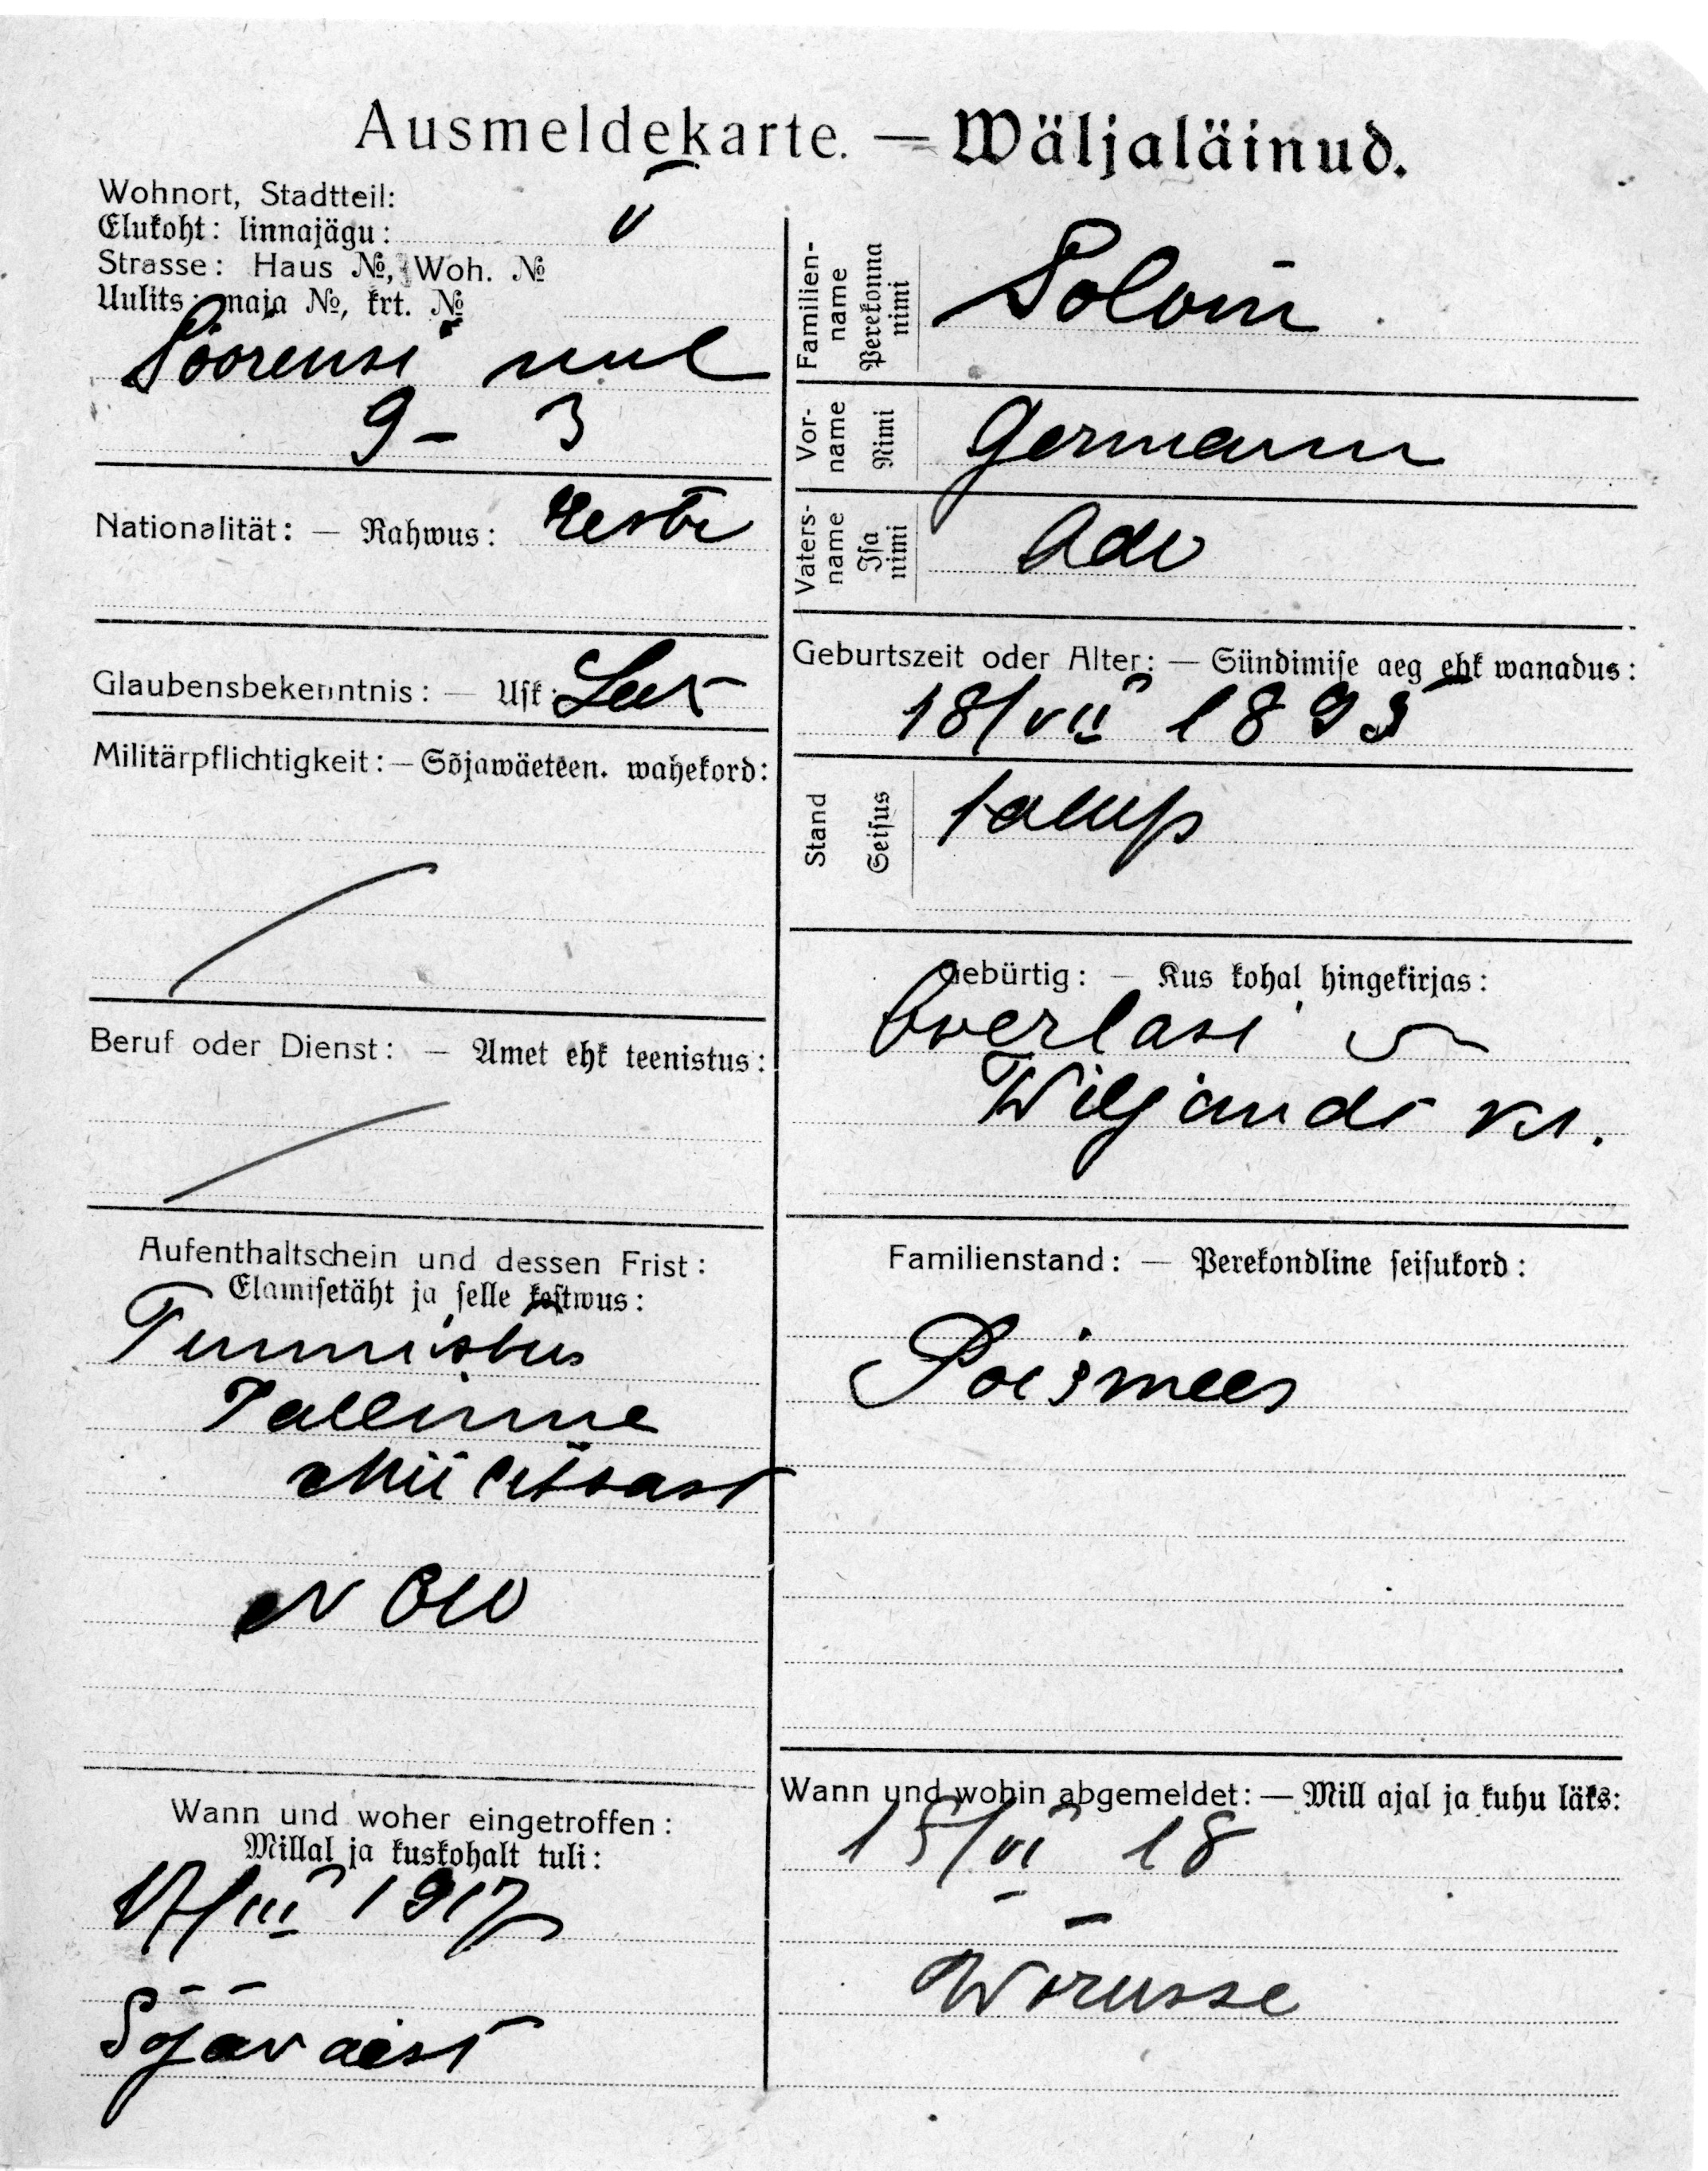 Ausmeldekarte. — Wäljaläinud.
Wohnort, Stadtteil:
Elukoht: linnajägu: V
Strasse: Haus №, Woh. №
Uulits: maja №, krt. №
Söörensi uul
9 – 3
Nationalität: — Rahwus: Eesti
Glaubensbekenntnis: — Usk: Lut
Militärpflichtigkeit: — Sõjawäeteen. wahekord:
Beruf oder Dienst: — Amet ehk teenistus:
Aufenthaltschein und dessen Frist:
Elamisetäht ja selle kestwus:
Tunnistus
Tallinna
Miilitsast
Wann und woher eingetroffen:
Millal ja kuskohalt tuli:
17/III 1917
Sõjaväest
Familien-
name
Perekonna
nimi
Soloin
Vor-
name
Nimi
Germann
Vaters-
name
Isa
nimi
Ado
Geburtszeit oder Alter: — Sündimise aeg ehk wanadus:
18/VII 1893
Stand
Seisus
talup
Gebürtig: — Kus kohal hingekirjas:
Owerlasi
Wiljandi kr.
Familienstand: — Perekondline seisukord:
Poismees
Wann und wohin abgemeldet: — Mill ajal ja kuhu läks:
15/VI 18
Wõrusse